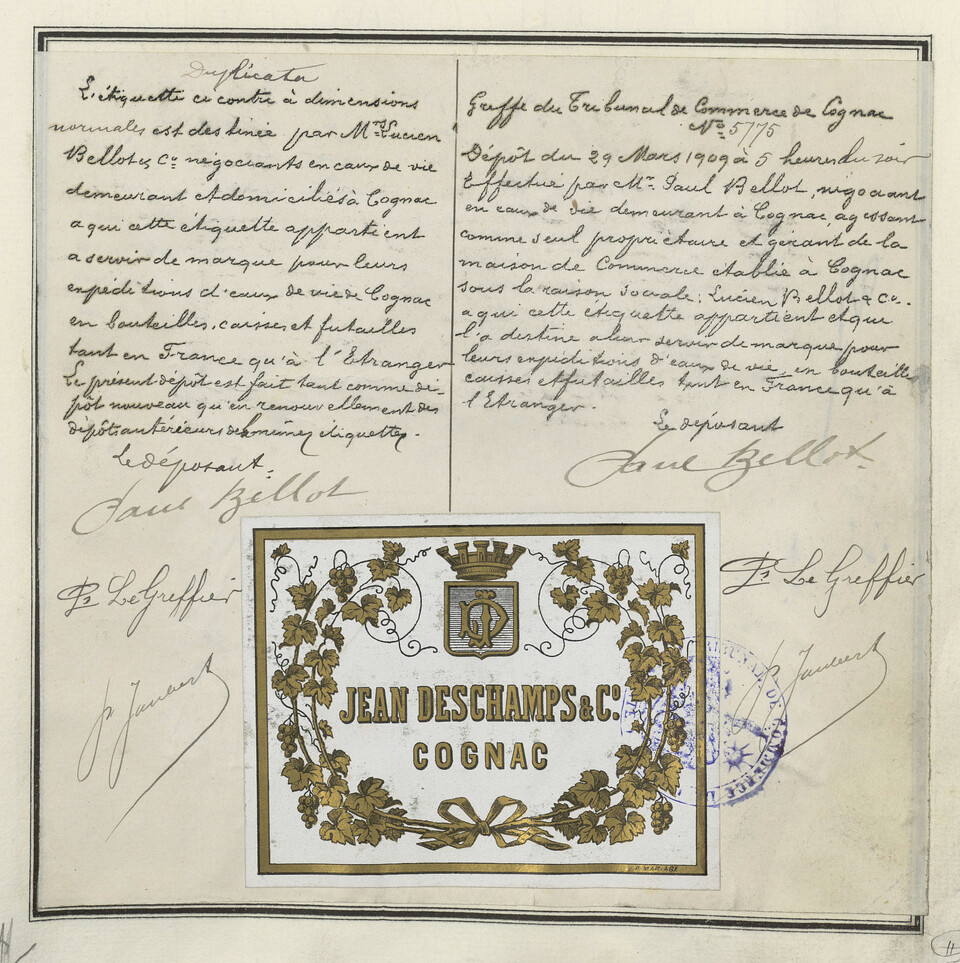 Duplicata
L'étiquette ci contre à dimensions
normales est destinée par Mrs Lucien
Bellot & Co négociants en eaux de vie
demeurant et domiciliés à Cognac
a qui cette étiquette appartient
a servir de marque pour leurs
expéditions d'eaux de vie de Cognac
en bouteilles, caisses et futailles
tant en France qu'à l'Etranger
Le présent dépôt est fait tant comme dé-
pôt nouveau qu'en renouvellement des
dépôts antérieurs des mêmes étiquettes.
Le déposant.
Paul Bellot
Pr Le Greffier
Greffe du Tribunal de Commerce de Cognac
No 5775
Dépôt du 29 Mars 1909 à 5 heures du soir
Effectué par Mr. Paul Bellot, négociant
en eaux de vie demeurant à Cognac, agissant
comme seul propriétaire et gérant de la
maison de Commerce établie à Cognac
sous la raison sociale: Lucien Bellot & Co.
a qui cette étiquette appartient et qui
l'a destine a leur servir de marque pour
leurs expéditions d'eaux de vie, en bouteilles
caisses et futailles tant en France qu'à
l'Etranger.
Le déposant
Paul Bellot.
Pr Le Greffier
JEAN DESCHAMPS & Co.
COGNAC
TRIBUNAL DE COMMERCE
11